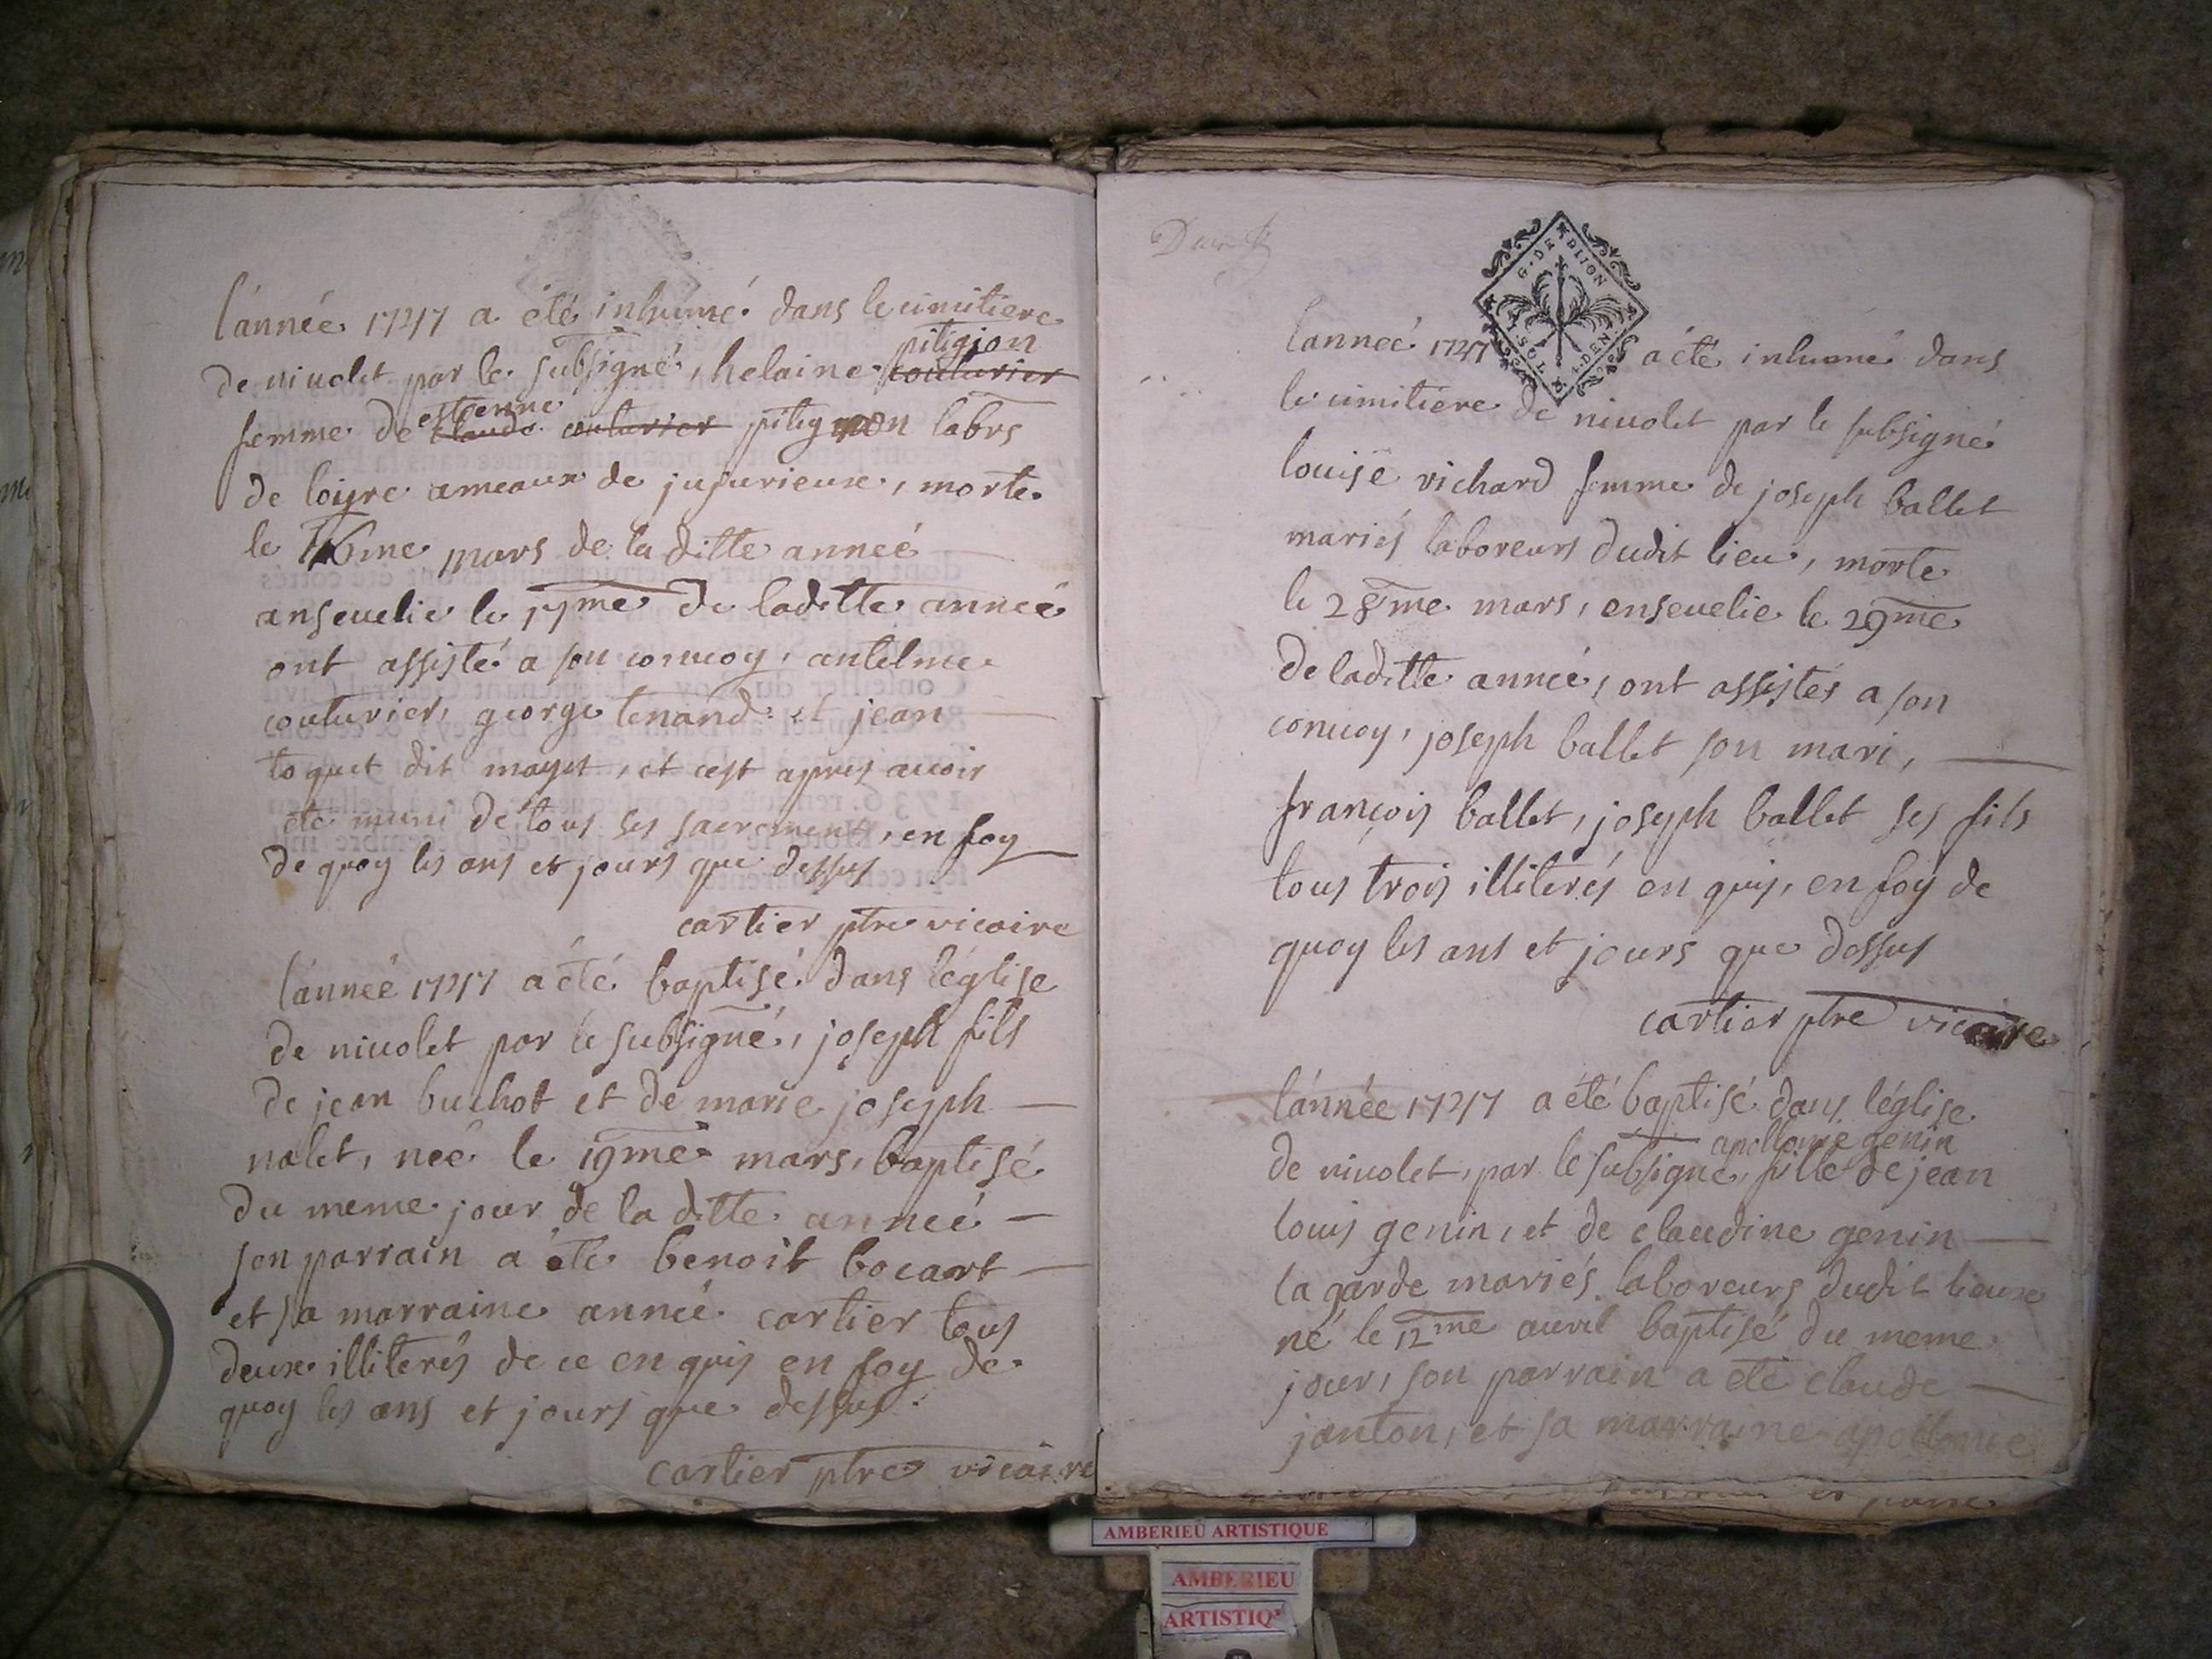 l'année 1747 a été inhumé dans le cimitiere
de nivolet par le subsigné, helaine couturier
pitigion
femme de claude couturier pitignon labrs
estienne
de loigre ameaux de jujurieux, morte
le 16me mars de la ditte anneé
ansevelie le 17me de laditte anneé
ont assisté a son convoy, antelme
couturier, george tenand et jean
toquet dit mayet, et cest apres avoir
été muni de tous ses sacrement, en foy
de quoy les ans et jours que dessus
cartier ptre vicaire
l'anneé 1747 a été baptisé dans l'église
de nivolet par le subsigné, joseph fils
de jean buchot et de marie joseph
nalet, neé le 19me mars, baptisé
du meme jour de la ditte anneé
son parrain a été benoit bocart
et sa marraine anneé cartier tous
deux illiterés de ce enquis en foy de
quoy les ans et jours que dessus
cartier ptre vicaire
G. DE DIJON
1. SOL 4. DEN.
lanneé 1747 a été inhumé dans
le cimitiere de nivolet par le subsigné
louise richard femme de joseph ballet
mariés laboreurs dudit lieu, morte
le 28me mars, ensevelie le 29me
de laditte anneé, ont assistés a son
convoy, joseph ballet son mari,
françois ballet, joseph ballet ses fils
tous trois illiterés enquis, en foy de
quoy les ans et jours que dessus
cartier ptre vicaire
l'année 1747 a été baptisé dans l'église
apollonie genin
de nivolet, par le subsigné, fille de jean
louis genin, et de claudine genin
la garde mariés laboreurs dudit lieux
né le 12me avril baptisé du meme
jour, son parrain a été claude
janton, et sa marraine apollonie
AMBERIEU ARTISTIQUE
AMBERIEU
ARTISTIQ